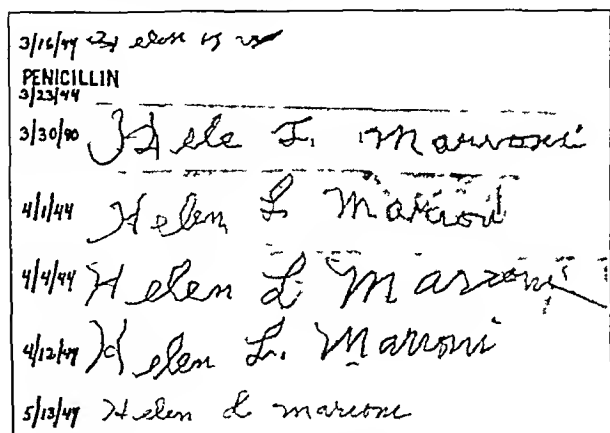 3/16/44
PENICILLIN
3/23/44
3/30/40 Hele L. Marroni
4/1/44 Helen L Marioni
4/4/44 Helen L Marroni
4/12/44 Helen L. Marroni
5/13/44 Helen L marioni